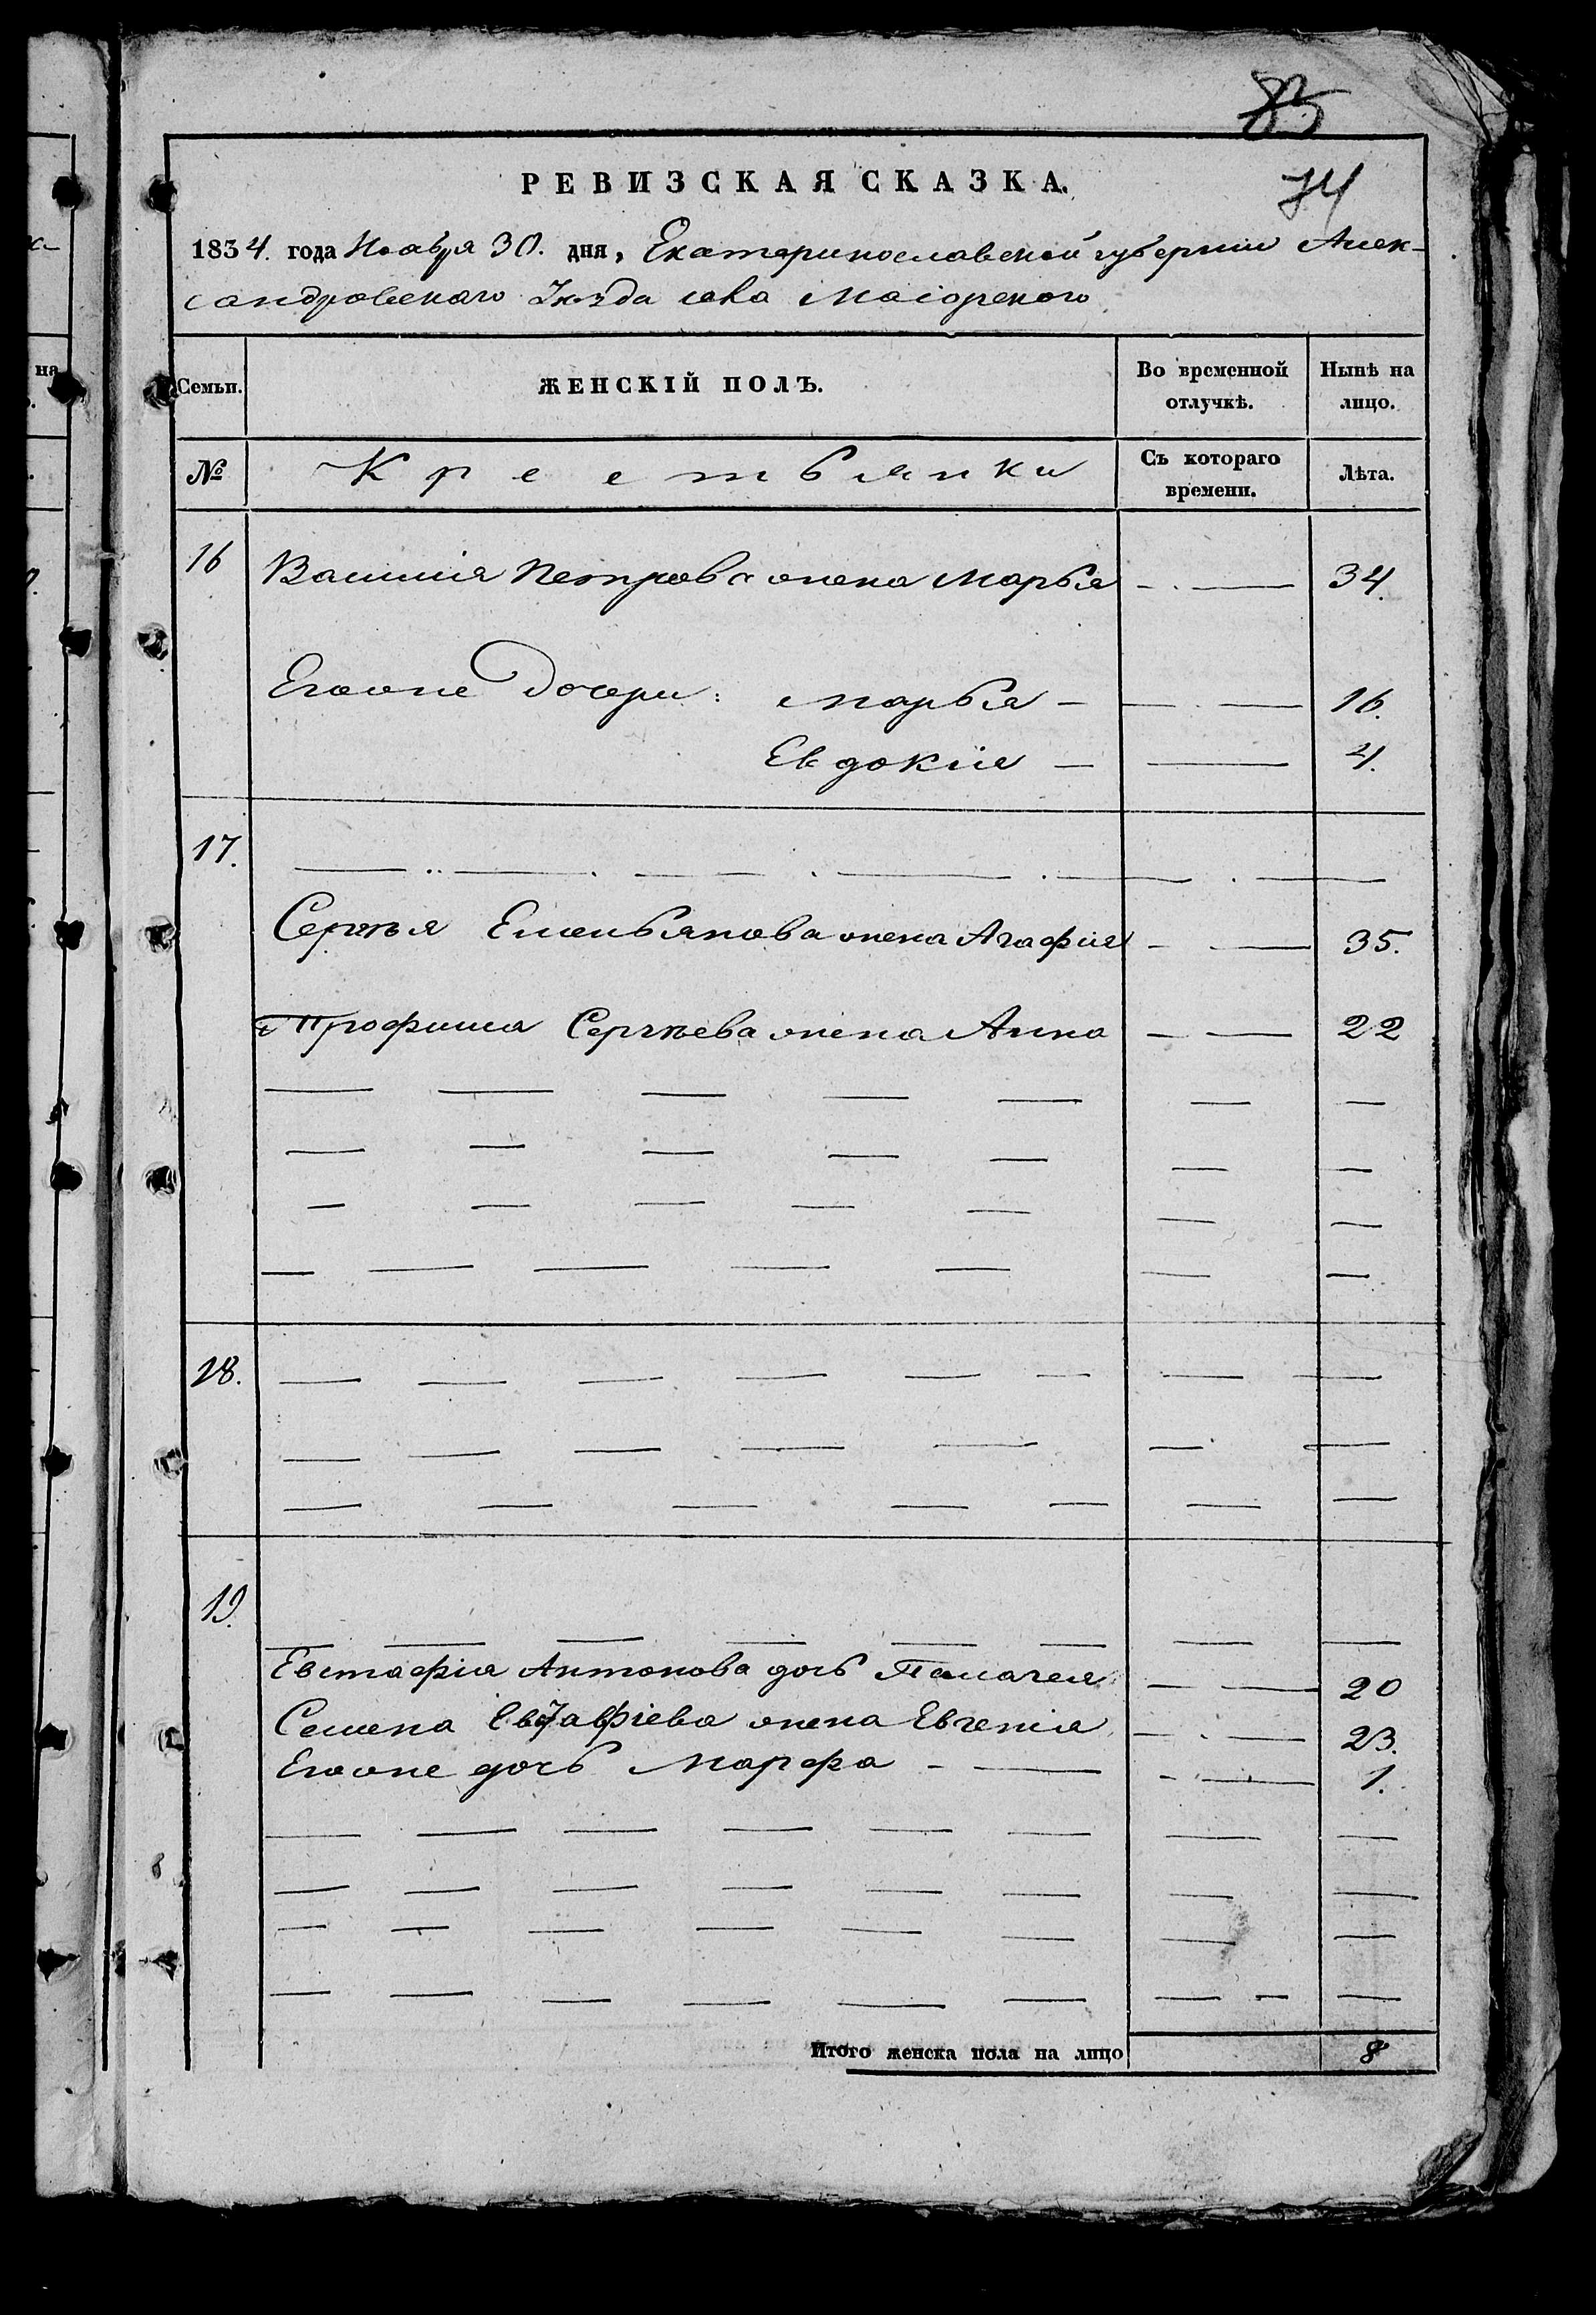 83
74
РЕВИЗСКАЯ СКАЗКА.
1834. года Ноября 30. дня, Екатеринославской губернии Алек-
сандровскаго Уѣзда села Маіорского
Семьи. ЖЕНСКІЙ ПОЛЪ. Во временной отлучкѣ. Нынѣ на лицо.
№ Крестьянки Съ котораго времени. Лѣта.
16 Василія Петрова жена Марья — 34.
Егоже дочери: Марья — — 16.
Евдокія — — 4.
17.
Сергѣя Емельянова жена Агафия — 35.
Трофима Сергѣева жена Анна — 22
18.
19.
Евстафія Антонова дочь Пелагея — 20
Семена Евстафіева жена Евгенія — 23.
Егоже дочь Марфа — — 1.
Итого женска пола на лицо 8
на